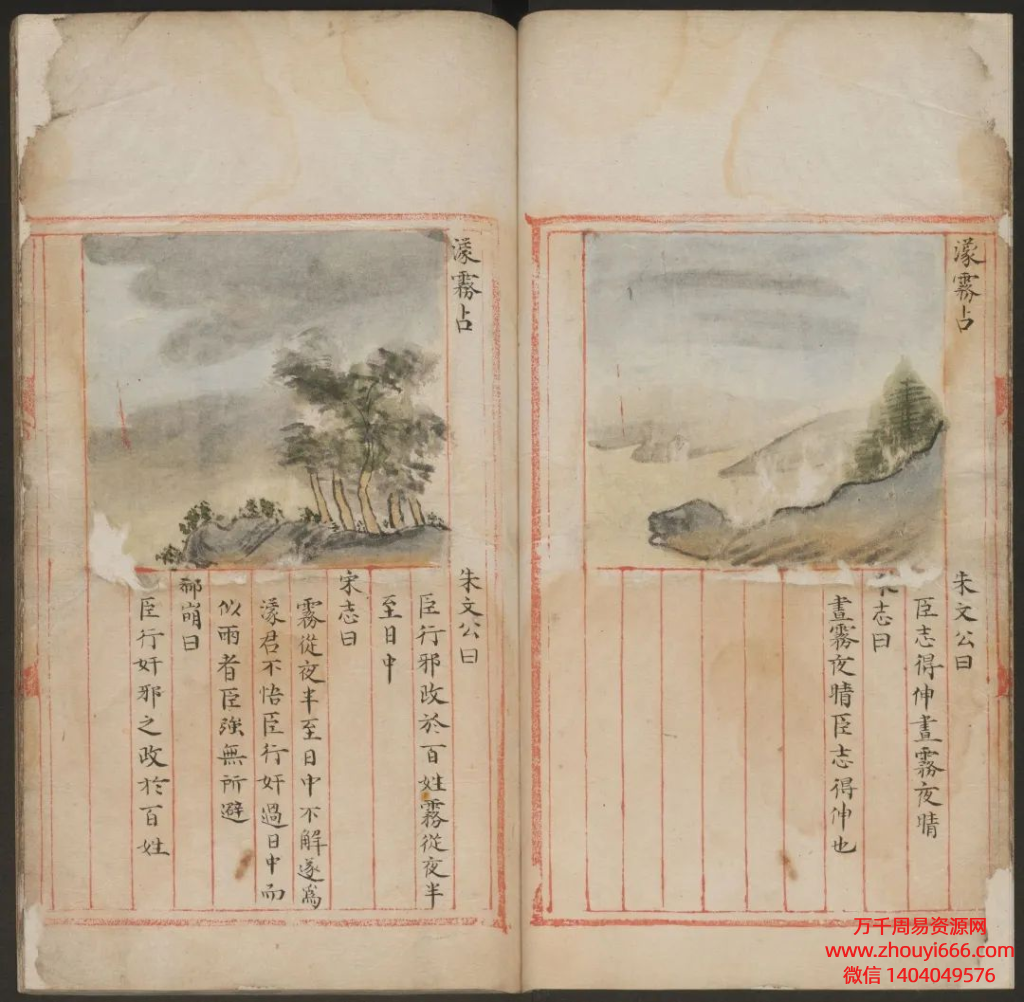 濛霧占
朱文公曰
臣志得伸晝霧夜晴
宋志曰
晝霧夜晴臣志得伸也
濛霧占
朱文公曰
臣行邪政於百姓霧從夜半
至日中
宋志曰
霧從夜半至日中不解遂為
濛君不悟臣行奸過日中而
似雨者臣強無所避
郗萌曰
臣行奸邪之政於百姓
万千周易资源网
www.zhouyi666.com
微信 1404049576